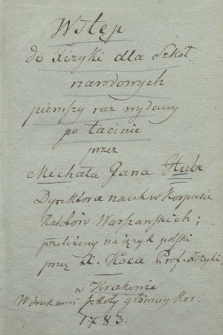 Wstęp
do Fizyki dla Szkół
narodowych
pierwszy raz wydany
po łacinie
przez
Michała Jana Hube
Dyrektora nauk w Korpusie
Kadetów Warszawskich;
przełożony na język polski
przez X. Koca Prof. Fizyki
w Krakowie
W drukarni Szkoły głównej Kor.
1783.